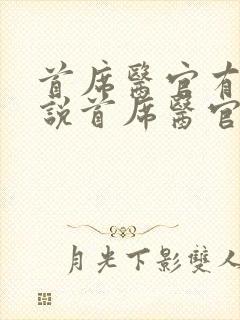 首席醫官有
説首席醫官
月光下影雙人